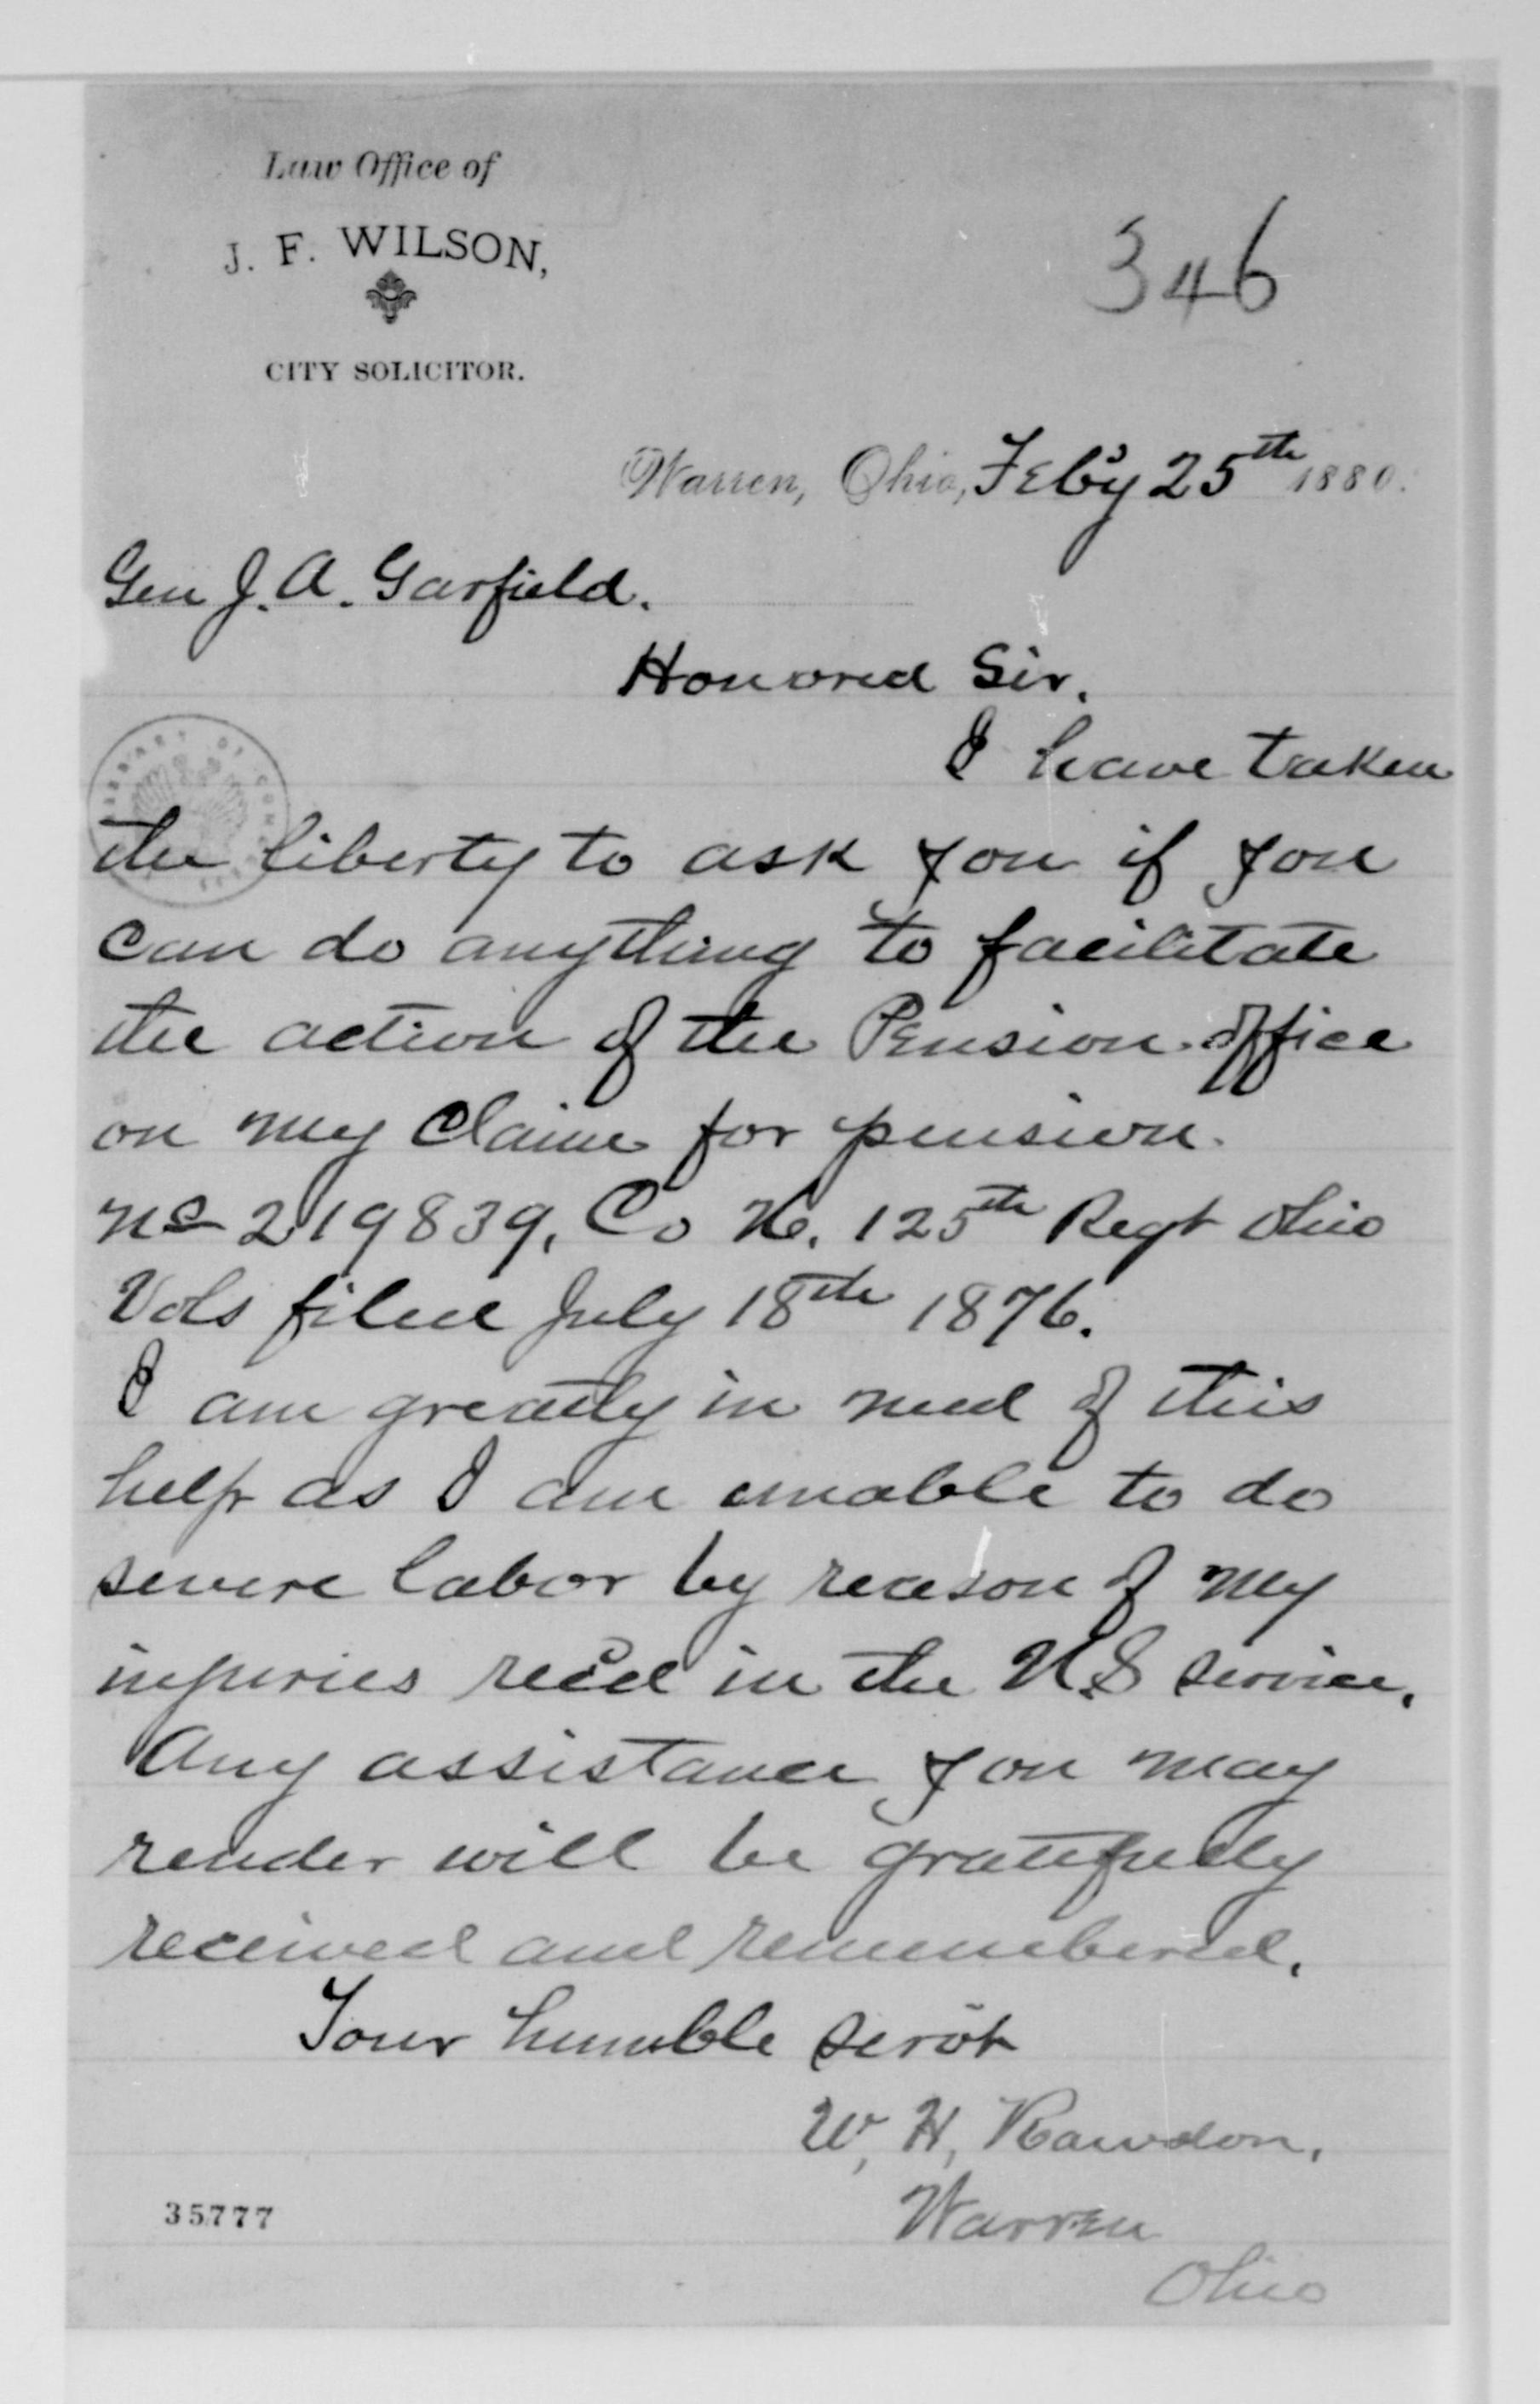 Law Office of
J. F. WILSON,
CITY SOLICITOR.
346
Warren, Ohio, Feb'y 25th 1880.
Gen J. A. Garfield.
Honored Sir.
I have taken
the liberty to ask you if you
can do anything to facilitate
the action of the Pension office
on my Claim for pension.
No 219839, Co H. 125th Regt Ohio
Vols filed July 18th 1876.
I am greatly in need of this
help as I am unable to do
severe labor by reason of my
injuries rec'd in the U.S service.
Any assistance you may
render will be gratefully
received and remembered.
Your humble servt
W, H, Rawdon,
Warren
Ohio
35777